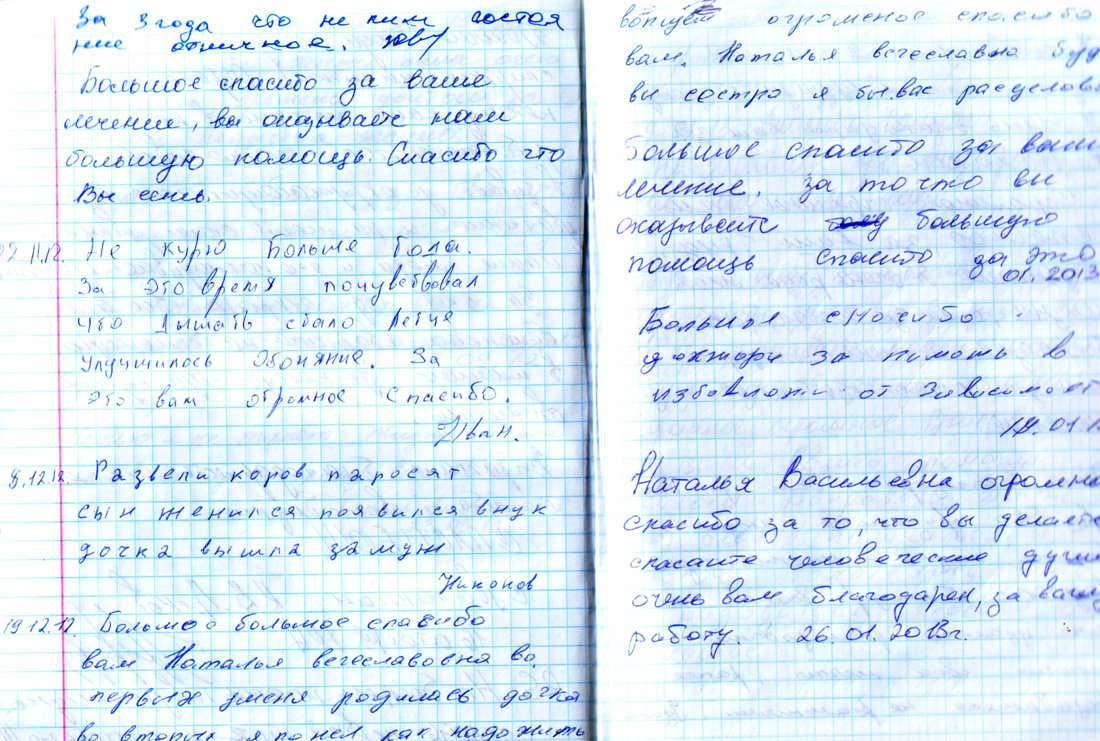 За 3 года что не пил, состоя
ние отличное.
Большое спасибо за ваше
лечение, вы оказываете нам
большую помощь. Спасибо что
Вы есть.
11.12. Не курю больше года.
За это время почувствовал
что дышать стало легче
улучшилось обоняние. За
это вам огромное спасибо.
Иван.
8.12.12 Развели коров паросят
сын женился появился внук
дочка вышла замуж
Никонов
19.12.12. Большое большое спасибо
вам Наталья вегеславовна во
первых уменя родилась дочка
во вторых я понел как надожить
огроменое спасибо
вам. Наталья вегеславна буд
вы сестро я бы вас расцелов
Большое спасибо за ваш
лечение. за то что вы
оказывсете большую
помощь спасибо за это
01.2013
Большя спосибо
доктори за помош в
от Зависимост
01.1
Наталья Васильевна огромн
спасибо за то, что вы делаете
спасаите человеческие души
очень вам благодарен, за вашу
работу. 26.01.2013г.